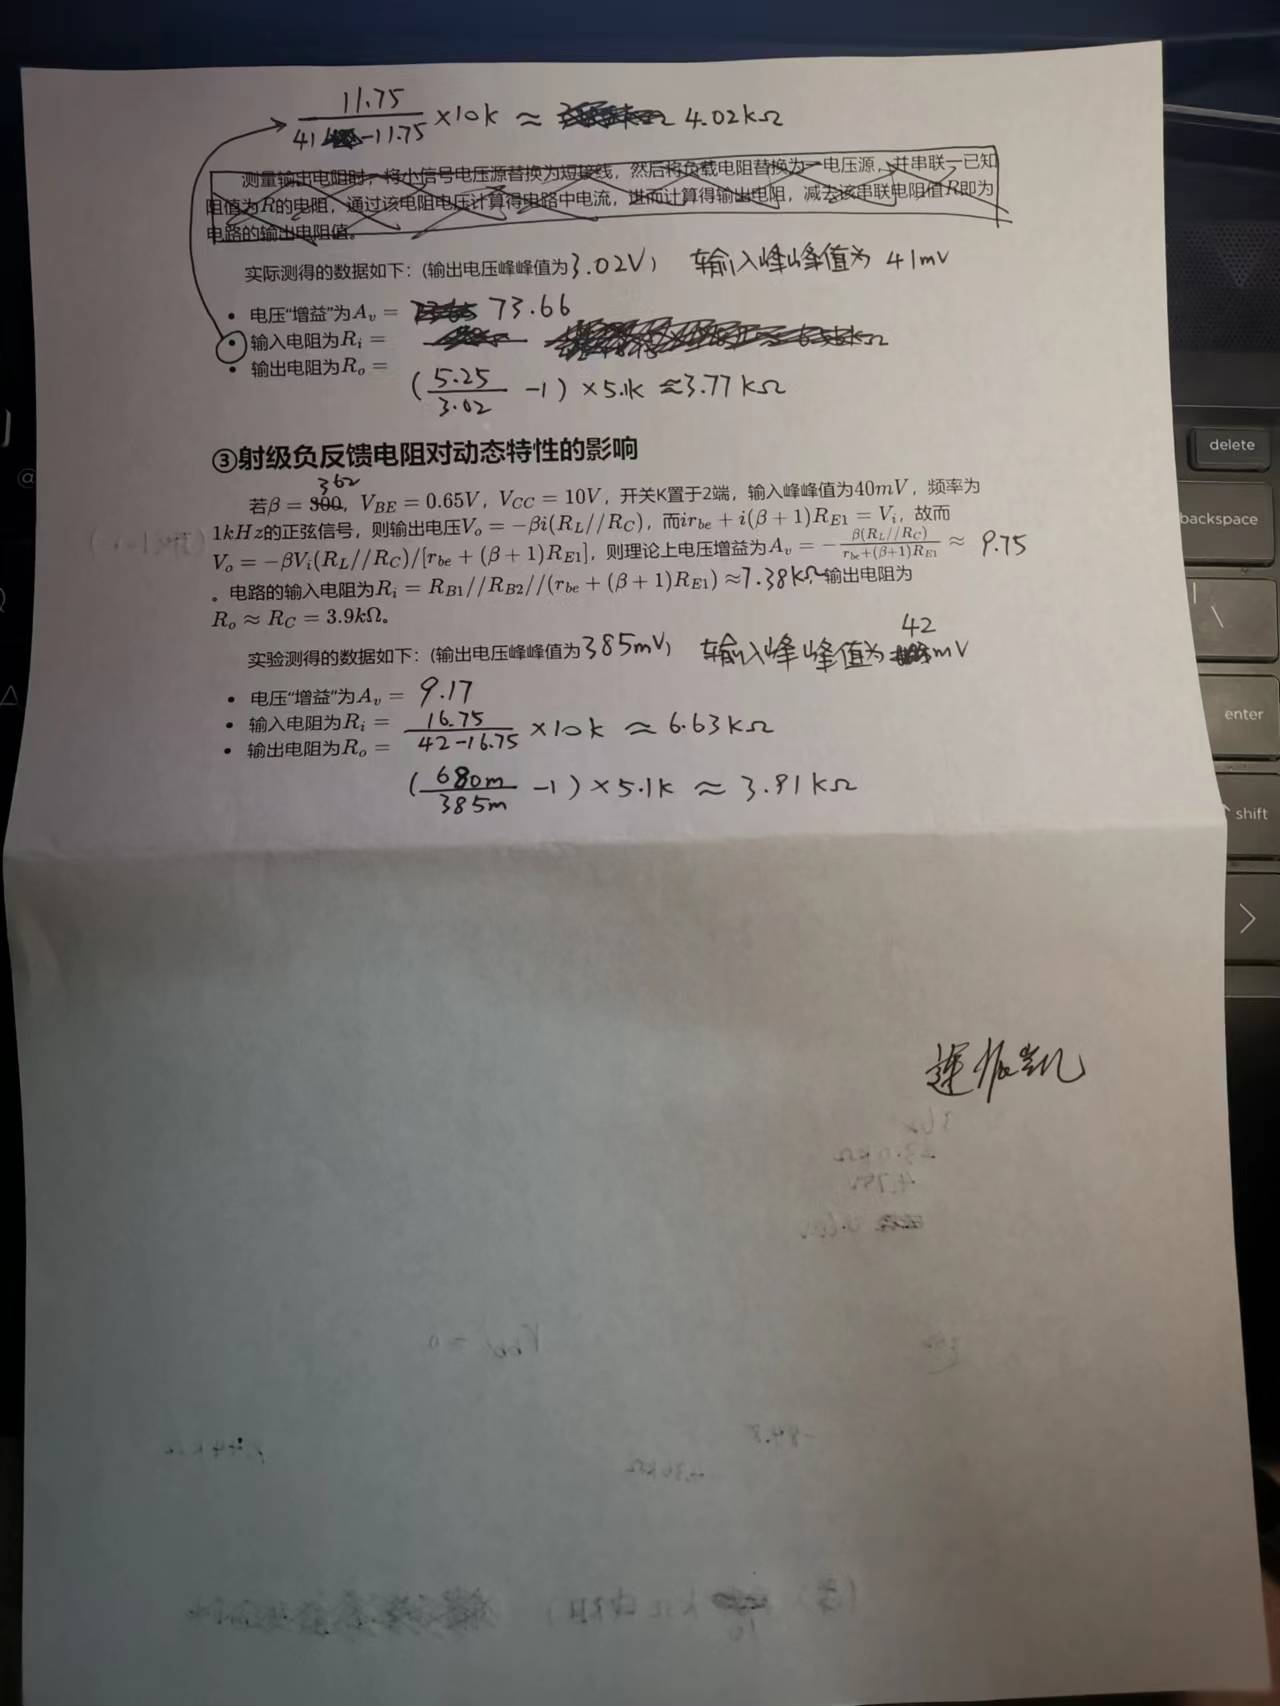 11.75
41 -11.75 ×10k ≈ 4.02kΩ
测量输出电阻时，将小信号电压源替换为短接线，然后将负载电阻替换为一电压源，并串联一已知
阻值为R的电阻，通过该电阻电压计算得电路中电流，进而计算得输出电阻，减去该串联电阻值R即为
电路的输出电阻值。
实际测得的数据如下：(输出电压峰峰值为3.02V) 输入峰峰值为 41mV
• 电压“增益”为Av = 73.66
• 输入电阻为Ri =
• 输出电阻为Ro =
(5.25/3.02 -1) ×5.1k ≈3.77kΩ
③射级负反馈电阻对动态特性的影响
362
若β = 300，VBE = 0.65V，VCC = 10V，开关K置于2端，输入峰峰值为40mV，频率为
1kHz的正弦信号，则输出电压Vo = −βi(RL//RC)，而irbe + i(β + 1)RE1 = Vi，故而
Vo = −βVi(RL//RC)/[rbe + (β + 1)RE1]，则理论上电压增益为Av = − β(RL//RC)/rbe+(β+1)RE1 ≈ 9.75
。电路的输入电阻为Ri = RB1//RB2//(rbe + (β + 1)RE1) ≈7.38kΩ 输出电阻为
Ro ≈ RC = 3.9kΩ。
42
实验测得的数据如下：(输出电压峰峰值为385mV) 输入峰峰值为 mV
• 电压“增益”为Av = 9.17
• 输入电阻为Ri = 16.75/42-16.75 ×10k ≈ 6.63kΩ
• 输出电阻为Ro =
(680m/385m -1) ×5.1k ≈ 3.91kΩ
delete
backspace
\
enter
shift